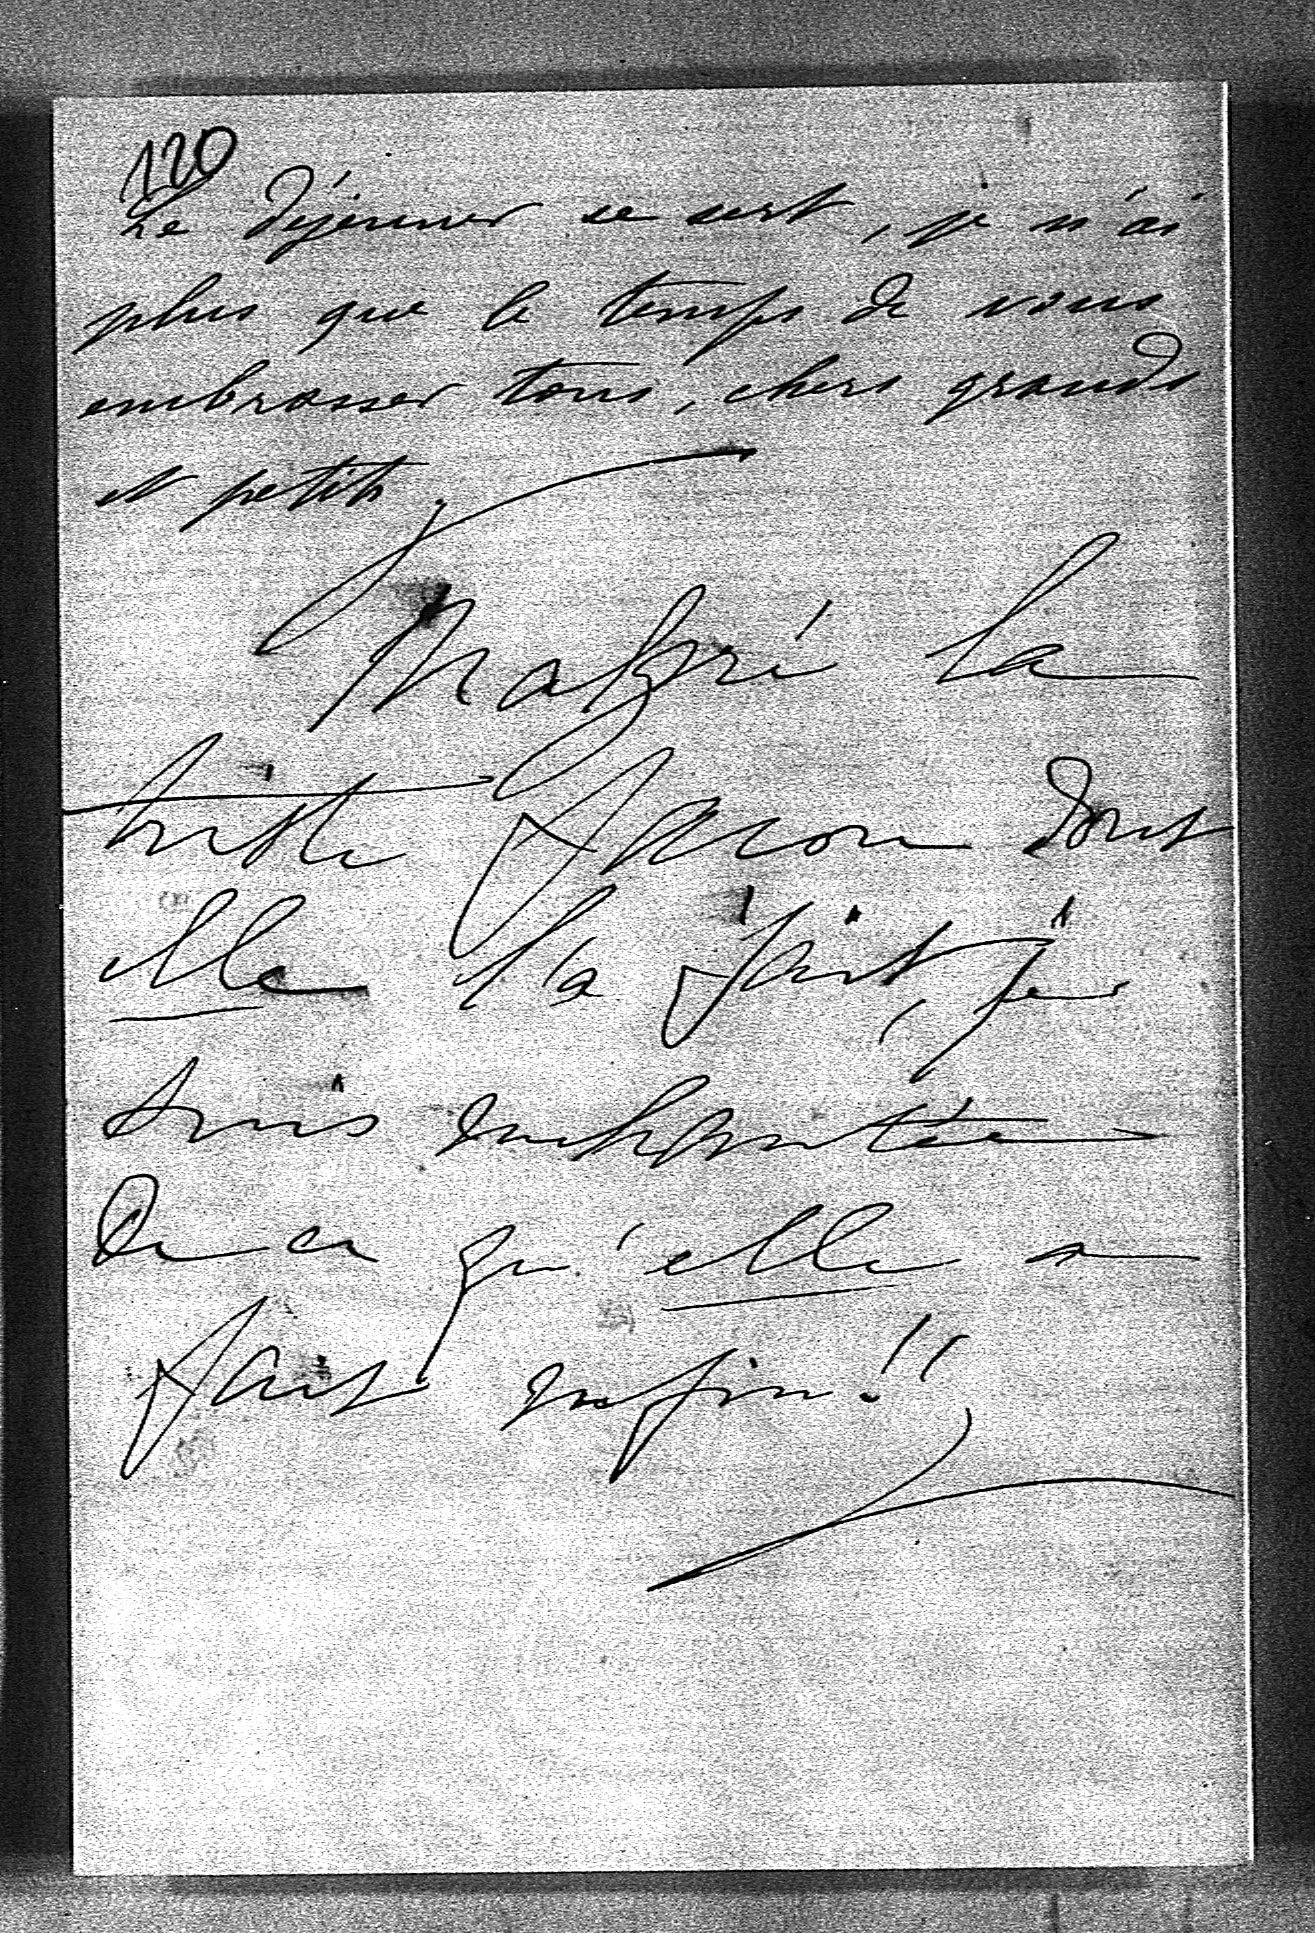 120
Le déjeuner se sert, je n'ai
plus que le temps de vous
embrasser tous, chers grands
et petits.
Malgré la
triste façon dont
elle l'a fait, je
suis enchantée
de ce qu'elle a
fait enfin!!